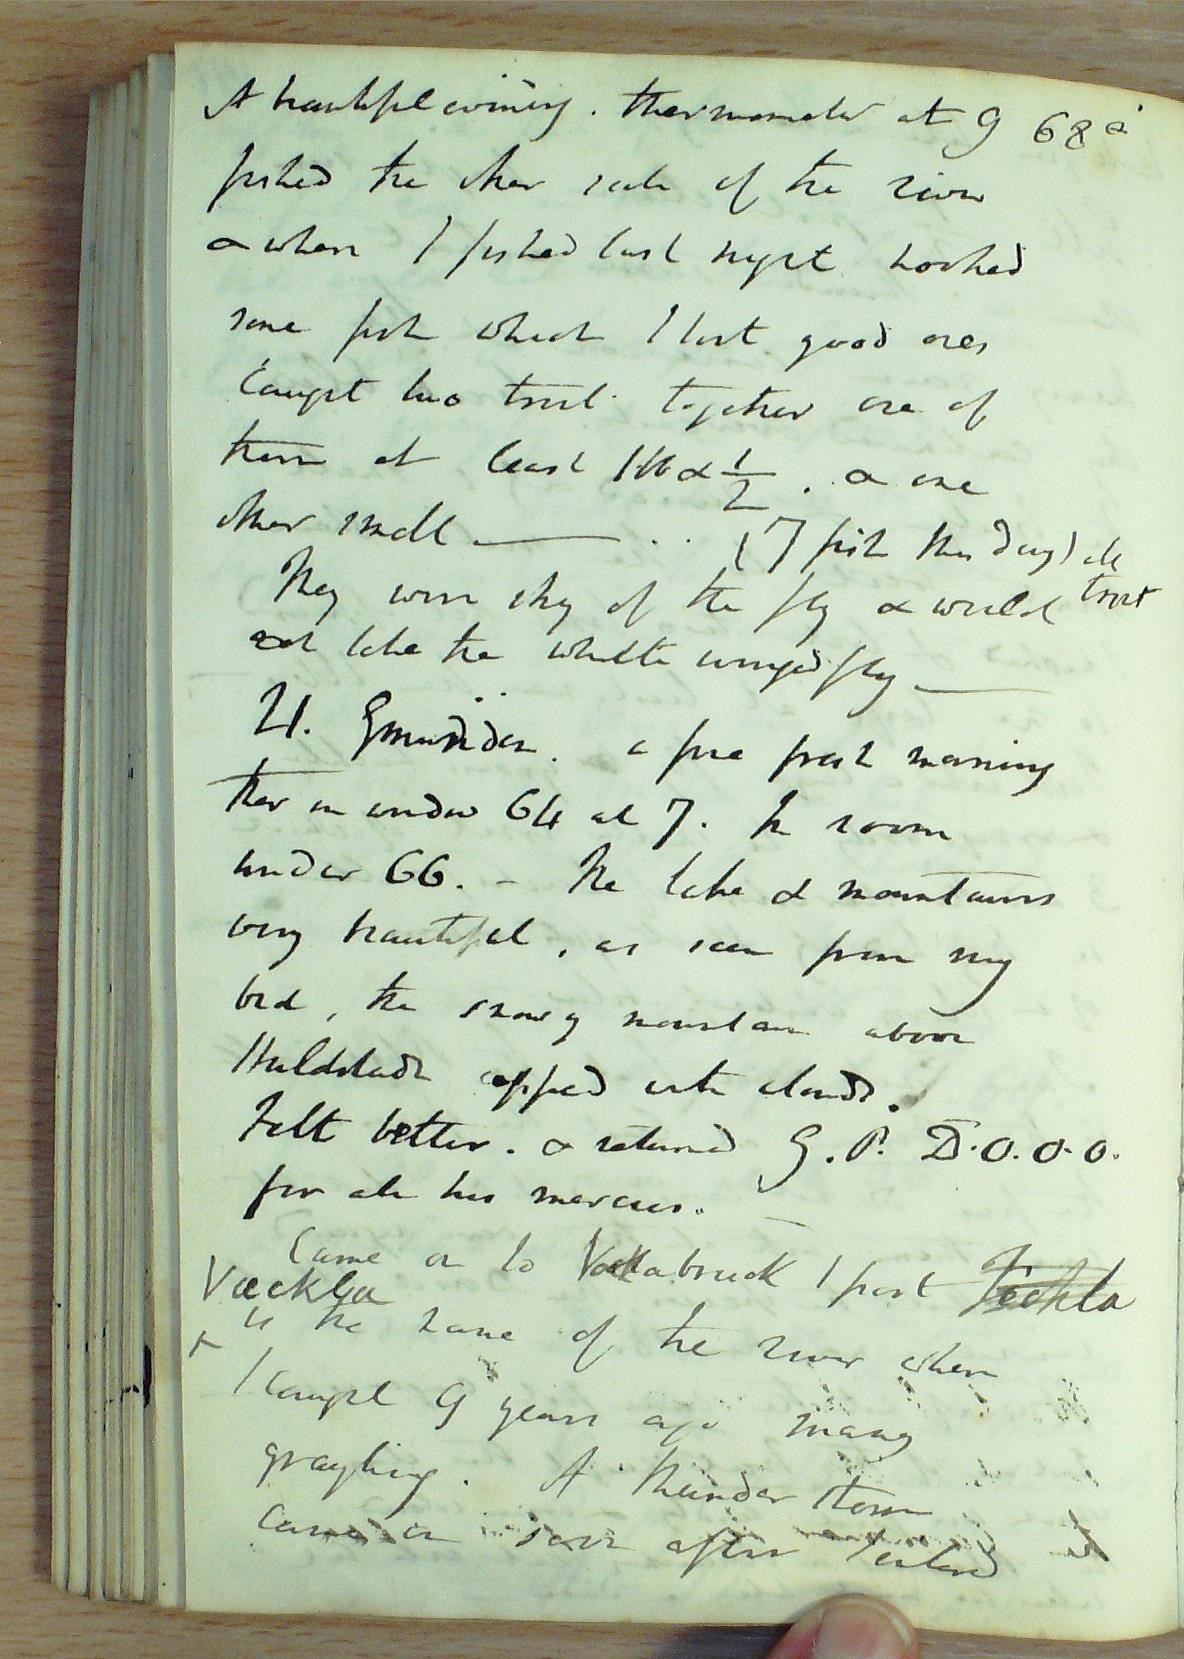 A beautiful evening. thermometer at 9 68°
fished the other side of the river
& where I fished last night hooked
some fish which I lost good ones
Caught two trout together one of
them at least 1 lb & 1/2. & one
other small —— .. (7 fish this day) all
trout
They were shy of the fly & would
not take the white winged fly ——
21. Gmünden. a fine fresh morning
ther in window 64 at 7. In room
under 66. - The lake & mountains
very beautiful, as seen from my
bed, the snowy mountain above
Haldstadt capped with clouds.
Felt better. & returned G. P. D.O.O.O.
for all his mercies.
Came on to Vocklabruck 1 post Vöckla
Vöckla
is the name of the river where
I caught 9 years ago many
grayling. A thunder storm
came on soon after I